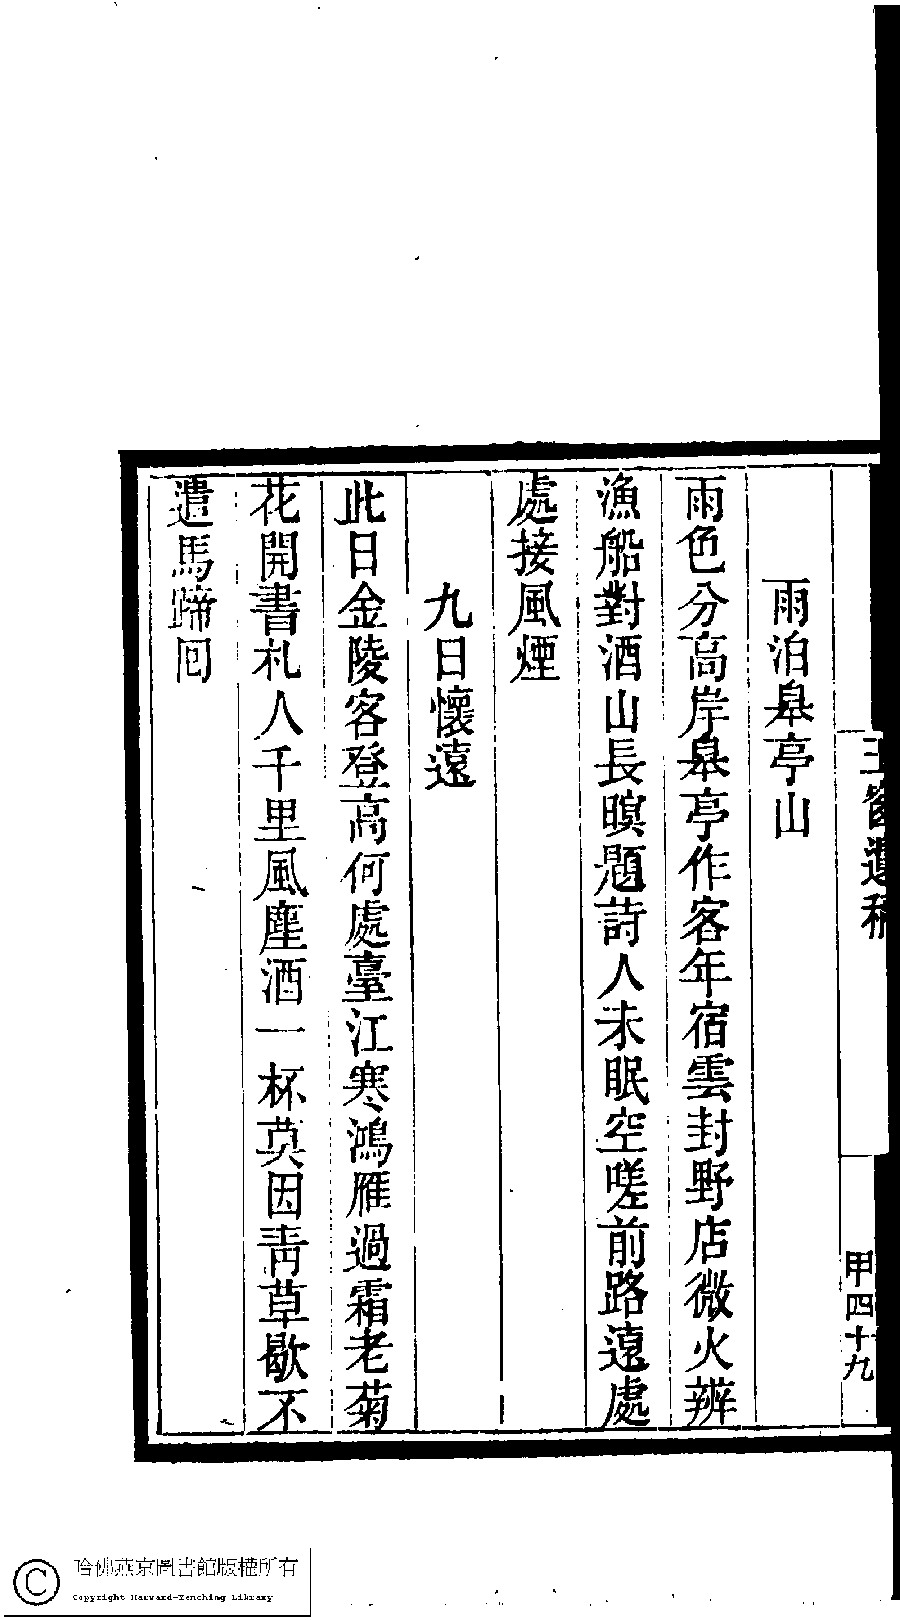 雨泊皋亭山
雨色分高岸皋亭作客年宿雲封野店微火辨
漁船對酒山長暝題詩人未眠空嗟前路遠處
處接風煙
九日懷遠
此日金陵客登高何處臺江寒鴻雁過霜老菊
花開書札人千里風塵酒一杯莫因青草歇不
遣馬蹄囘
遺稿
甲四十九
哈佛燕京圖書館版權所有
Copyright Harvard-Yenching Library